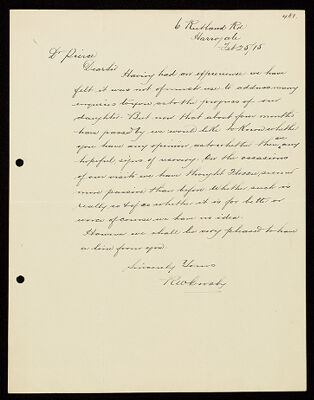 481.
6 Rutland Rd
Harrogate
Feb 25/15
Dr Pierce
Dear Sir Having had an experience we have
felt it was not of much use to address many
enquiries to you as to the progress of our
daughter. But now that about four months
have passed by we would like to know whether
you have any opinion as to whether there are any
hopeful signs of recovery. On the occasions
of our visits we have thought seemed
more passive than before. Whether such is
really so & if so whether it is for better or
worse of course we have no idea.
However we shall be very pleased to have
a line from you
Sincerely Yours